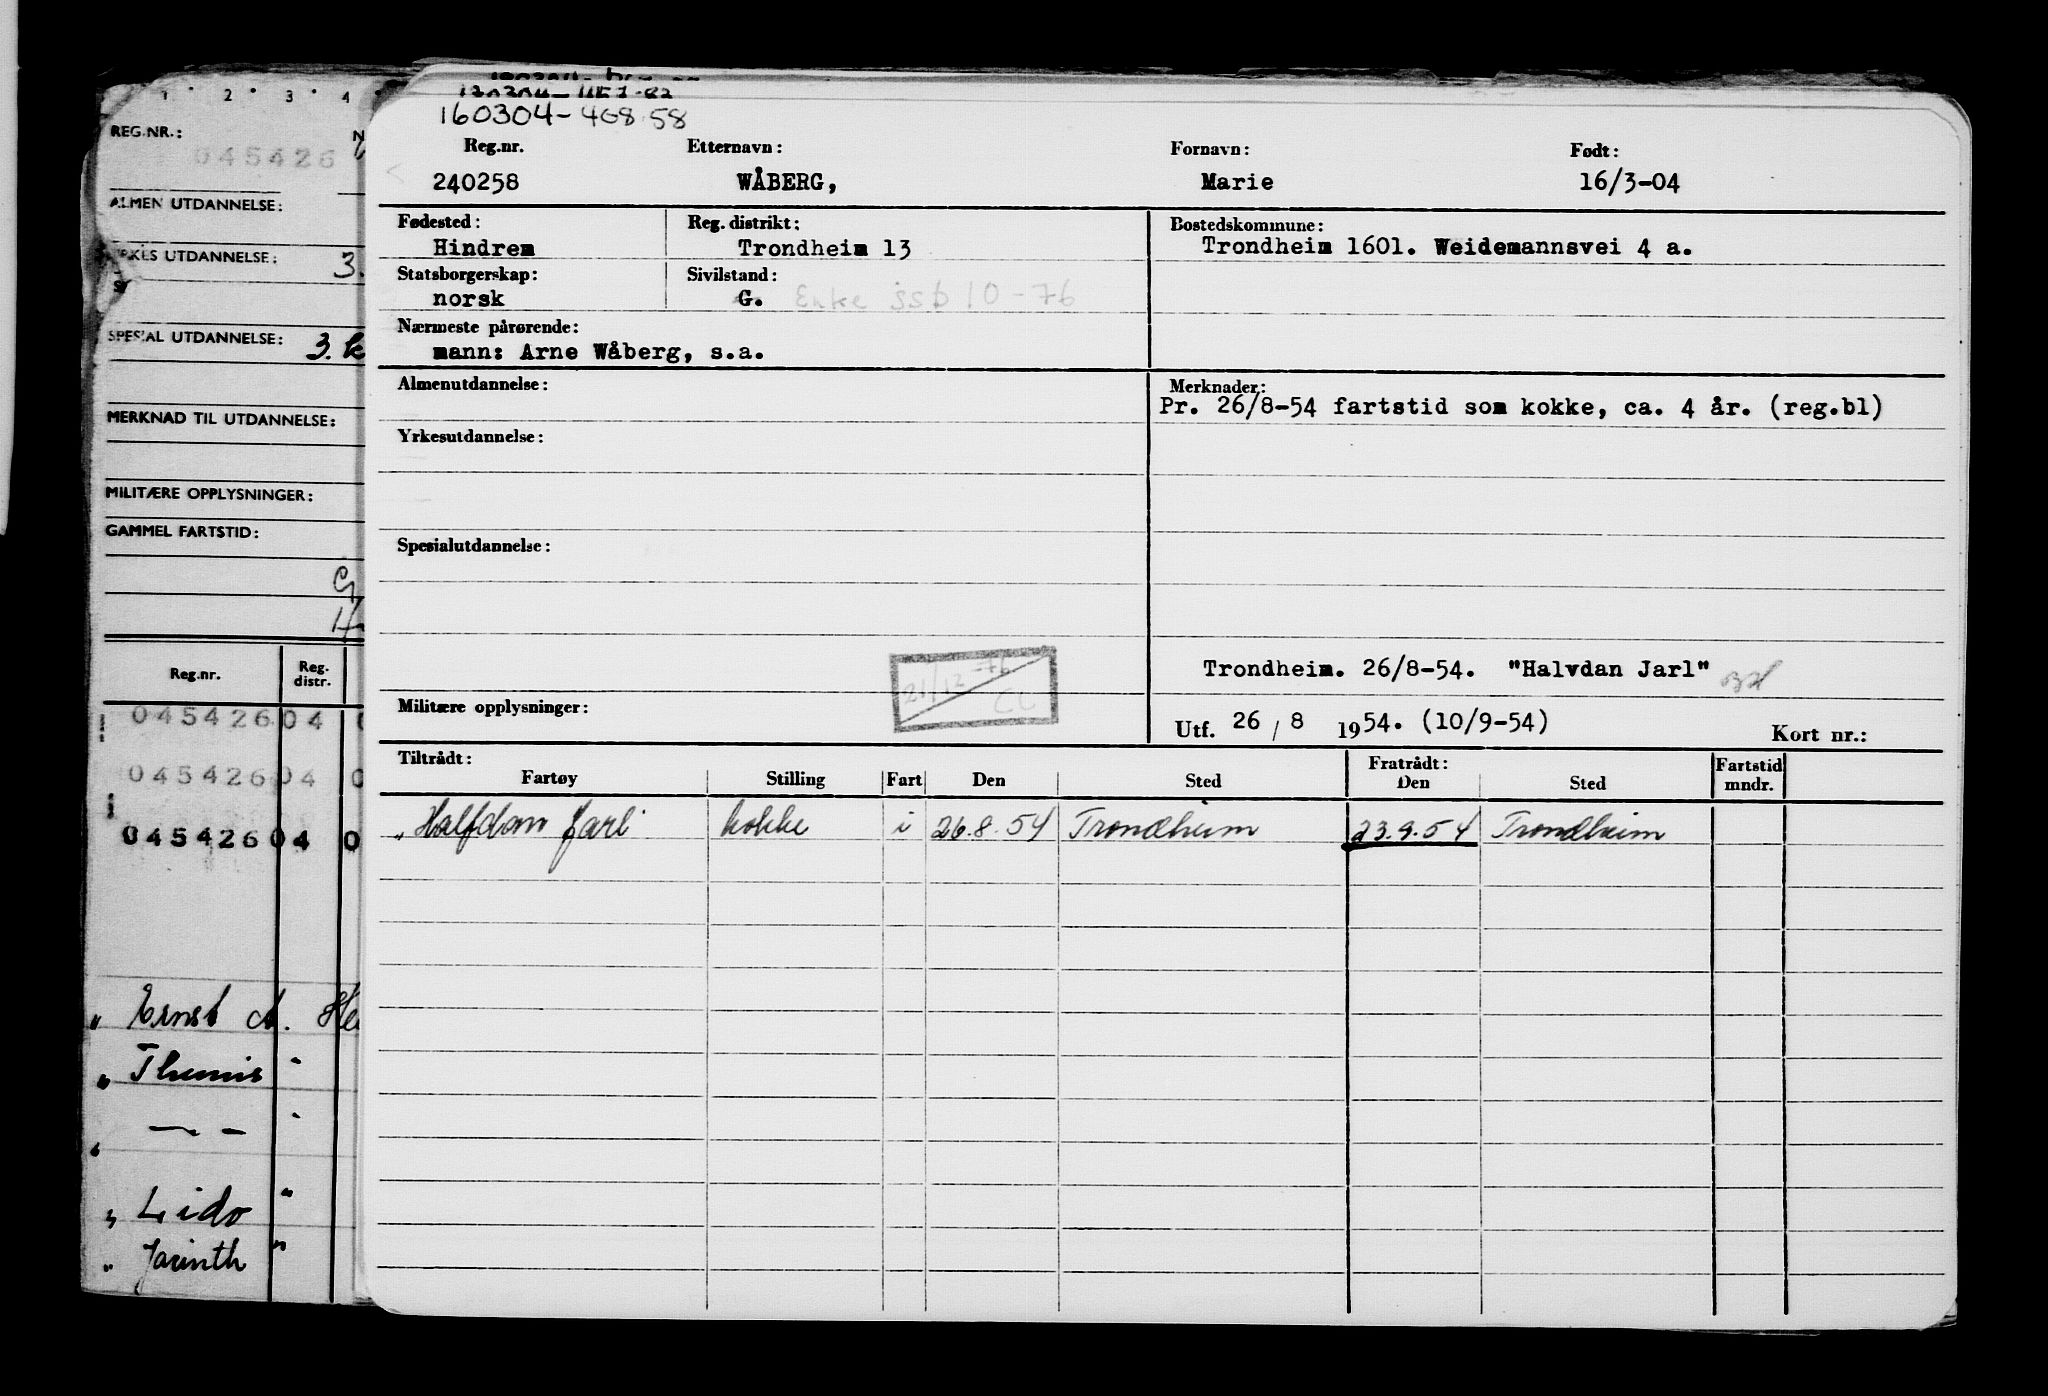 160304-46858
Reg.nr. Etternavn: Fornavn: Født:
240258 WÅBERG, Marie 16/3-04
Fødested: Reg. distrikt: Bostedskommune:
Hindrem Trondheim 13 Trondheim 1601. Weidemannsvei 4 a.
Statsborgerskap: Sivilstand:
norsk G. Enke jsp 10-76
Nærmeste pårørende:
mann: Arne Wåberg, s.a.
Almenutdannelse: Merknader:
Pr. 26/8-54 fartstid som kokke, ca. 4 år. (reg.bl)
Yrkesutdannelse:
Spesialutdannelse:
21/12 -76
CL
Trondheim. 26/8-54. "Halvdan Jarl"
Militære opplysninger:
Utf. 26 / 8 1954. (10/9-54) Kort nr.:
Tiltrådt: Fratrådt: Fartstid
Fartøy Stilling Fart Den Sted Den Sted mndr.
"Halfdan Jarl" kokke i 26.8.54 Trondheim 23.9.54 Trondheim
1 2 3 4
REG.NR.:
045426
ALMEN UTDANNELSE:
UTDANNELSE:
3.
SPESIAL UTDANNELSE: 3.
MERKNAD TIL UTDANNELSE:
MILITÆRE OPPLYSNINGER:
GAMMEL FARTSTID:
Reg.nr. Reg. distr.
045426 04 0
045426 04 0
045426 04 0
" Ernst A.
" Themis "
" — — "
" Lido "
" Jacinth "